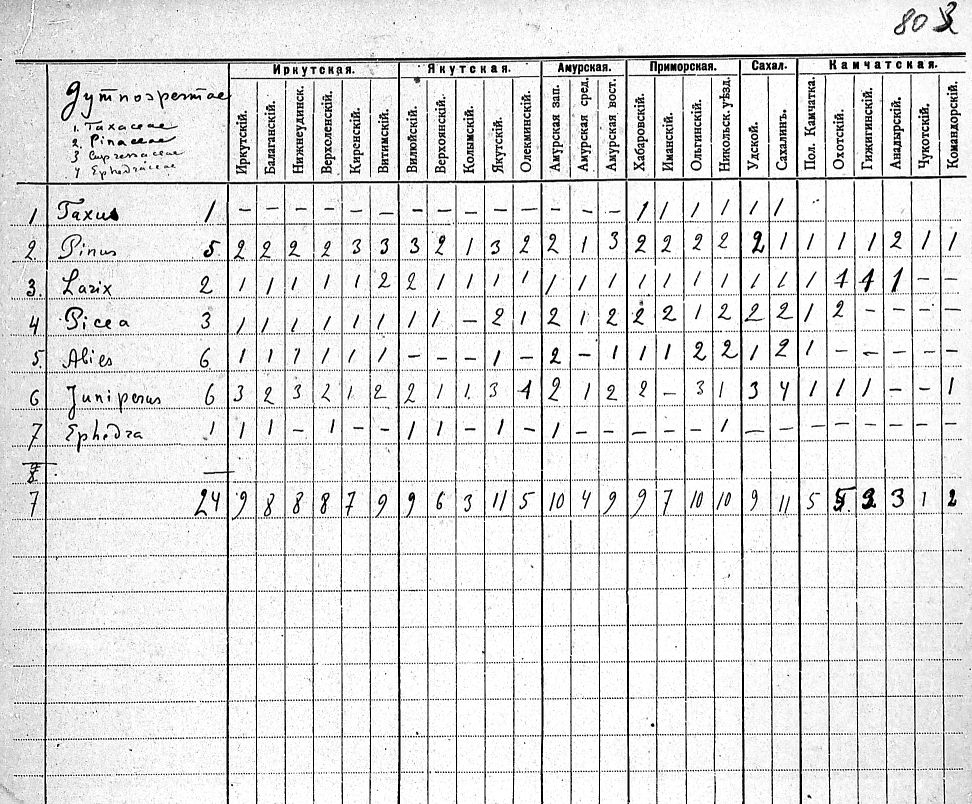 80
Иркутская. Якутская. Амурская. Приморская. Сахал. Камчатская.
Gymnospermae
1. Taxaceae
2. Pinaceae
3 Cupressaceae
4 Ephedraceae
Иркутскій. Балаганскій. Нижнеудинск. Верхоленскій. Киренскій. Витимскій. Вилюйскій. Верхоянскій. Колымскій. Якутскій. Олекминскій. Амурская зап. Амурская сред. Амурская вост. Хабаровскій. Иманскій. Ольгинскій. Никольск. уѣзд. Удской. Сахалинъ. Пол. Камчатка. Охотскій. Гижигинскій. Анадырскій. Чукотскій. Командорскій.
1 Taxus 1 – – – – – – – – – – – – – – 1 1 1 1 1 1
2. Pinus 5. 2 2 2 2 3 3 3 2 1 3 2 2 1 3 2 2 2 2 2 1 1 1 1 2 1 1
3. Larix 2 1 1 1 1 1 2 2 1 1 1 1 1 1 1 1 1 1 1 1 1 1 1 1 1 – –
4 Picea 3 1 1 1 1 1 1 1 1 – 2 1 2 1 2 2 2 1 2 2 2 1 2 – – – –
5. Abies 6 1 1 1 1 1 1 – – – 1 – 2 – 1 1 1 2 2 1 2 1 – – – – –
6 Juniperus 6 3 2 3 2 1 2 2 1 1 3 1 2 1 2 2 – 3 1 3 4 1 1 1 – – 1
7 Ephedra 1 1 1 – 1 – – 1 1 – 1 – 1 – – – – – 1 – – – – – – – –
8
7 24 9 8 8 8 7 9 9 6 3 11 5 10 4 9 9 7 10 10 9 11 5 5 3 3 1 2